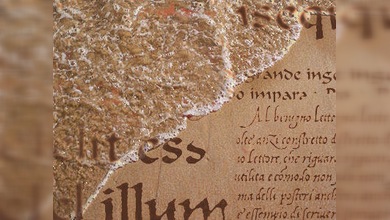 isequ
grande inge
o impara ·
Al benigno letto
olte anzi constretto d
o lettore, che riguard
utilita e comodo non
ma delli posteri anch
e essempio di scriver
ess
illum